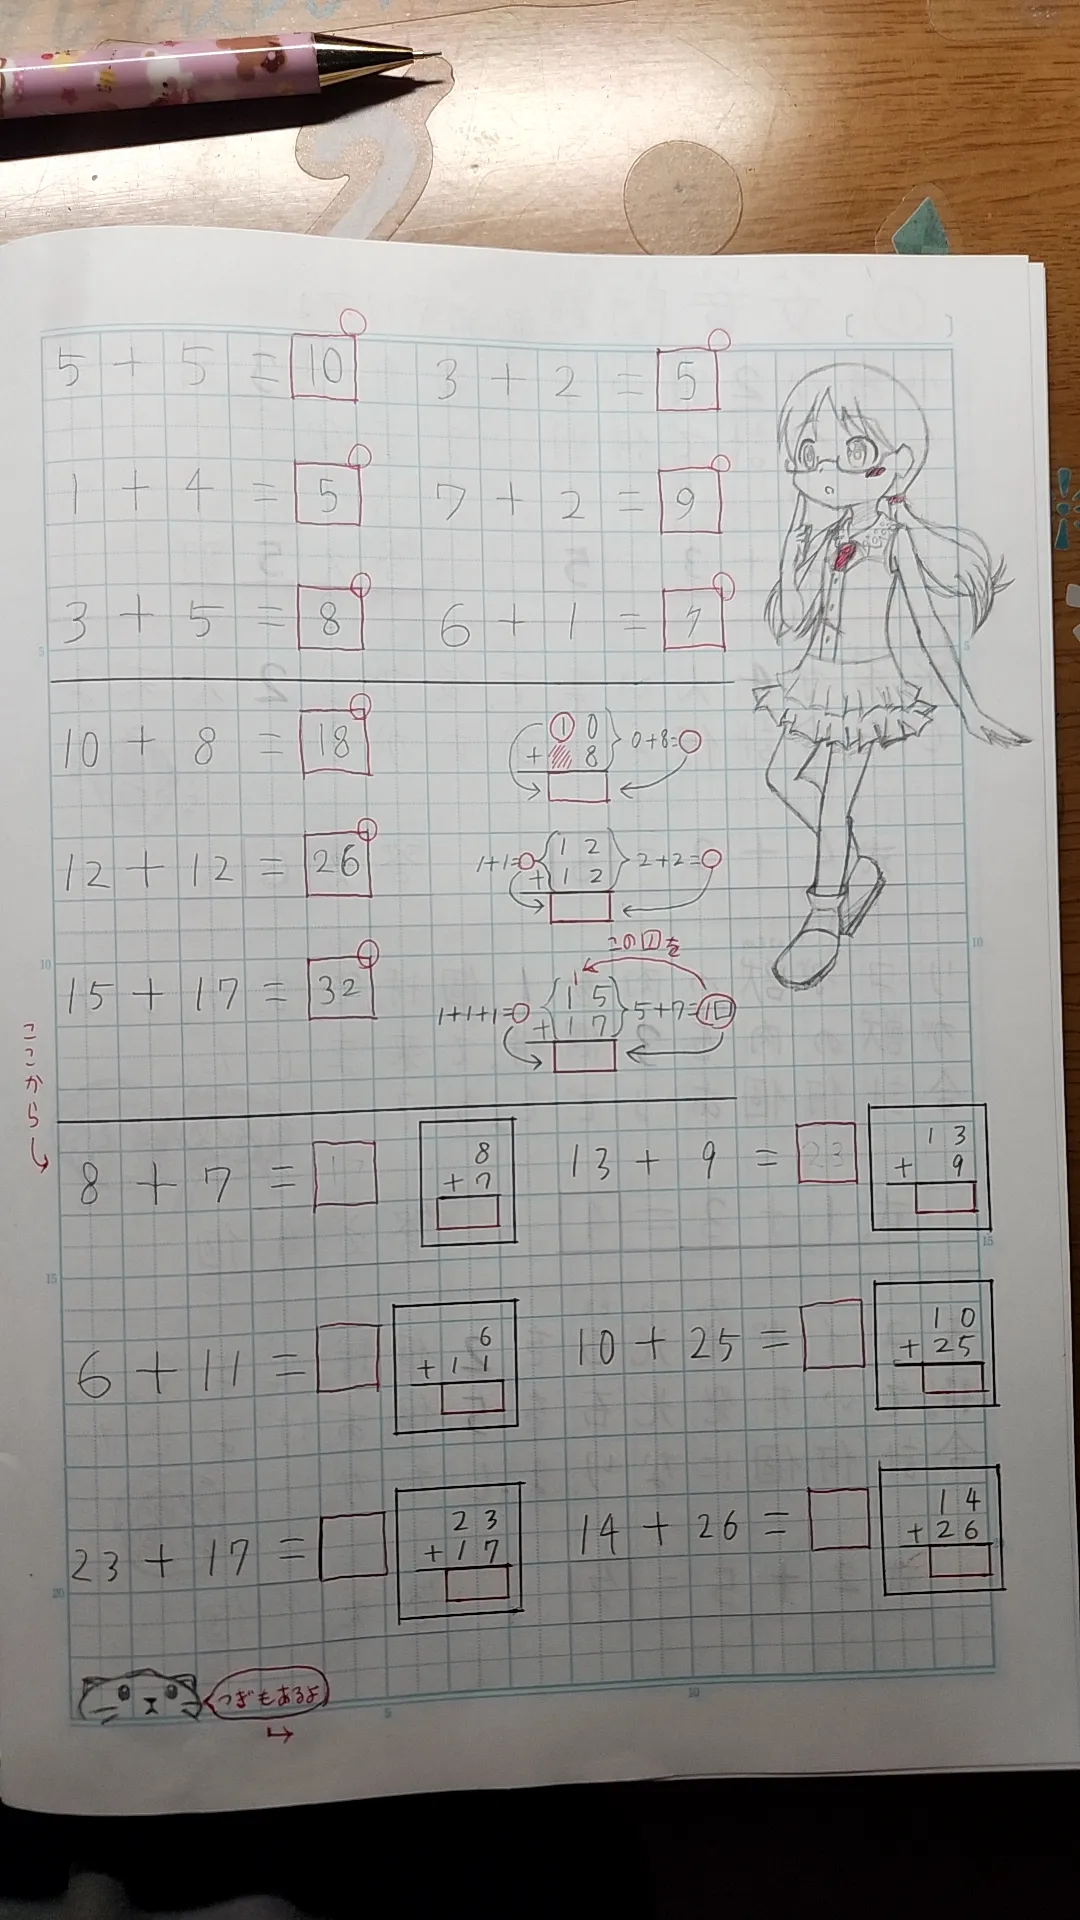 5 + 5 = 10
3 + 2 = 5
1 + 4 = 5
7 + 2 = 9
3 + 5 = 8
6 + 1 = 7
10 + 8 = 18
1 0
+ 8
0+8=
12 + 12 = 26
1+1=
1 2
+ 1 2
2+2=
15 + 17 = 32
この1を
1
1+1+1=
1 5
+ 1 7
5+7=1
ここから
8 + 7 =
8
+ 7
13 + 9 = 23
1 3
+ 9
6 + 11 =
6
+ 1 1
10 + 25 =
1 0
+ 2 5
23 + 17 =
2 3
+ 1 7
14 + 26 =
1 4
+ 2 6
つぎもあるよ
5
5
10
10
15
15
20
5
10